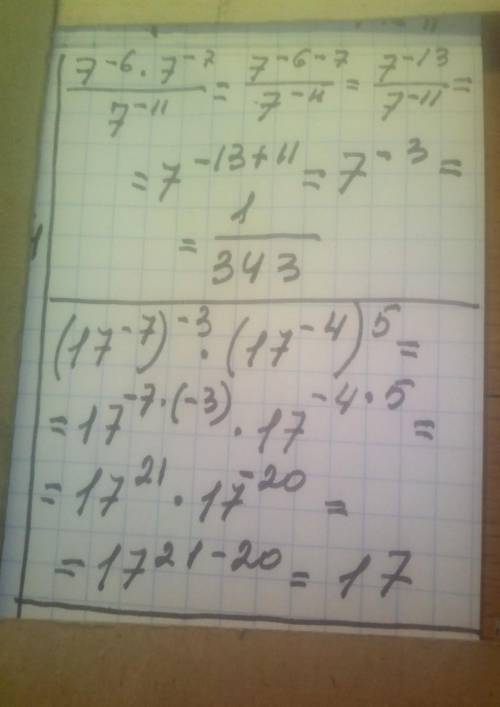 7^{-6} · 7^{-7} / 7^{-11} = 7^{-6-7} / 7^{-11} = 7^{-13} / 7^{-11} =
= 7^{-13+11} = 7^{-3} =
= 1 / 343
(17^{-7})^{-3} · (17^{-4})^{5} =
= 17^{-7·(-3)} · 17^{-4·5} =
= 17^{21} · 17^{-20} =
= 17^{21-20} = 17